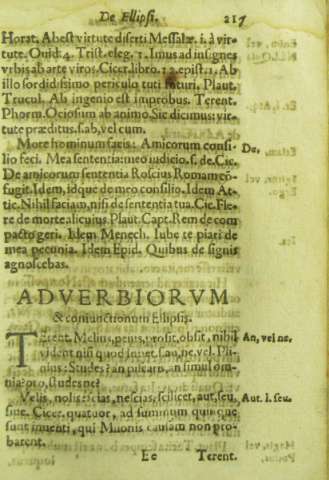 De Ellipsi. 217
Horat. Abest virtute diserti Messalæ. i. à vir-
tute. Ouid. 4. Trist. eleg. 1. Imus ad insignes
vrbis ab arte viros. Cicer. libro. 12. epist. 1. Ab
illo sordidissimo periculo tuti futuri. Plaut.
Trucul. Ab ingenio est improbus. Terent.
Phorm. Ociosum ab animo. Sic dicimus: vir-
tute præditus. s. ab, vel cum.
More hominum facis: Amicorum consi- De,
lio feci. Mea sententia: meo iudicio. s. de. Cic.
De amicorum sententia Roscius Romam cõ-
fugit. Idem, idque de meo consilio. Idem At-
tic. Nihil faciam, nisi de sententia tua. Cic. Fle-
re de morte alicuius. Plaut. Capt. Rem de com
pacto geri. Idem Menech. Iube te piari de
mea pecunia. Idem Epid. Quibus de signis
agnoscebas.
ADVERBIORVM
& coniunctionum Ellipsis.
TErent. Melius, peius, prosit, obsit, nihil An, vel ne,
vident nisi quod lubet. s. an, ne, vel. Pli-
nius: Studes? an piscaris, an simul om-
nia? pro, studes ne?
Velis, nolis: scias, nescias, scilicet, aut, seu, Aut. l. seu.
siue. Cicer. quatuor, ad summum quinque
sunt inuenti, qui Milonis causam non pro-
barent.
Ee Terent.